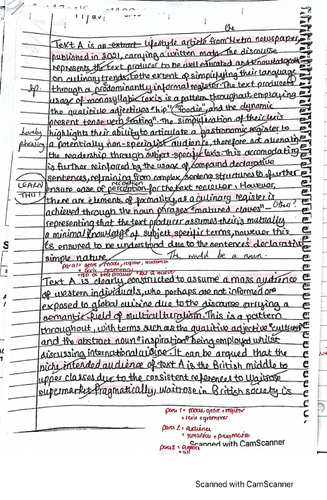 the
Text A is an extract lifestyle article from Metro newspaper,
published in 2021, carrying a written mode. The discourse
represents the text producer to be well educated and knowledgable
on culinary trends, to the extent of simplifying their language
through a predominantly informal register. The text producers
usage of monosyllabic lexis is a pattern throughout, employing
the qualitive adjectives "hip", "foodie", and the dynamic
present tense verb "testing". The simplification of their lexis
highlights their ability to articulate a gastronomic register to
a potentially non-specialist audience, therefore not alienating
the readership through subject-specific lexis. This accomodating
is further reinforced by the usage of compound declarative
sentences, refraining from complex sentence structures to further
reception
ensure ease of perception for the text receiver. However,
there are elements of formality, as a culinary register is
achieved through the noun phrases "matured cloves"
representing that the text producer assumes there's mutually
a minimal knowledge of subject specific terms, however this
is ensured to be understood due to the sentences declarative
simple nature.
would be a noun.
clumsy
phrasing
LEARN
THIS!
para 1: genre, mode, register, audience
+ lexis + grammar
Text A is clearly constructed to assume a mass audience
of western individuals, who perhaps are not informed or
exposed to global cuisine due to the discourse carrying a
semantic field of multiculturalism. This is a pattern
throughout, with terms such as the qualitive adjective "cultured"
and the abstract noun "inspiration" being employed whilst
discussing international cuisine. It can be argued that the
niche intended audience of Text A is the British middle to
upper classes due to the consistent references to Waitrose
supermarket. Pragmatically, Waitrose in British society is
para 1 = mode, genre + register
+ lexis + grammar
para 2 = audience
+ semantics + pragmatics
para 3 = purpose
Scanned with CamScanner
Scanned with CamScanner